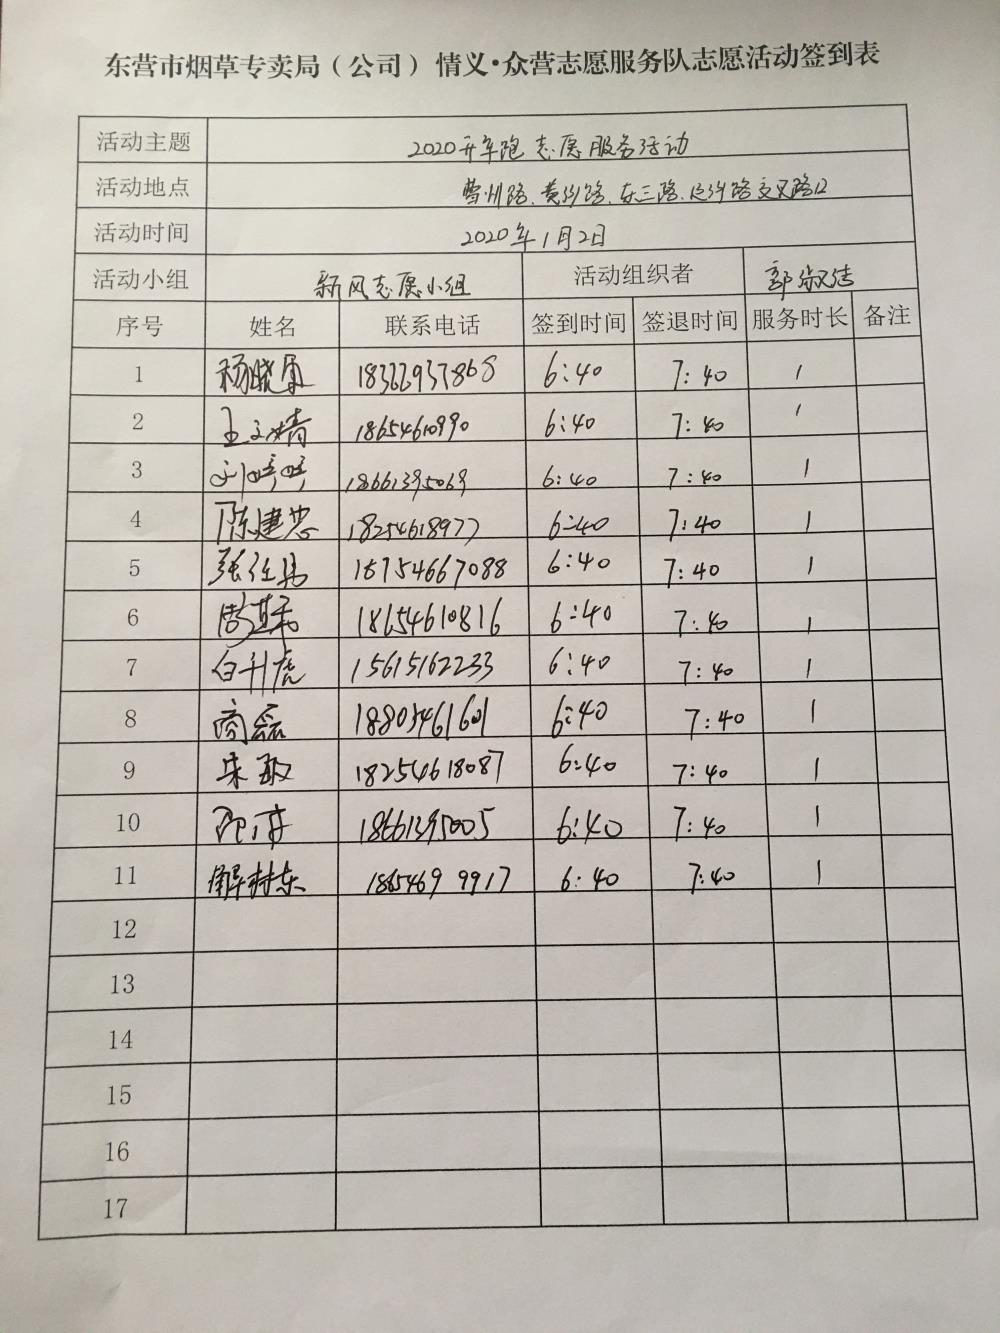 东营市烟草专卖局（公司）情义·众营志愿服务队志愿活动签到表
活动主题 2020开年跑志愿服务活动
活动地点 曹州路、黄河路、东三路、交叉路口
活动时间 2020年1月2日
活动小组 新风志愿小组 活动组织者 郭淑
序号 姓名 联系电话 签到时间 签退时间 服务时长 备注
1 杨晓 6:40 7:40 1
2 王文婧 18654610990 6:40 7:40 1
3 刘婷婷 18661395069 6:40 7:40 1
4 陈建忠 18254618977 6:40 7:40 1
5 张 15754667088 6:40 7:40 1
6 18654610816 6:40 7:40 1
7 白利虎 15615162233 6:40 7:40 1
8 商磊 18805461601 6:40 7:40 1
9 宋敏 18254618087 6:40 7:40 1
10 18661395005 6:40 7:40 1
11 解树东 1865469 9917 6:40 7:40 1
12
13
14
15
16
17